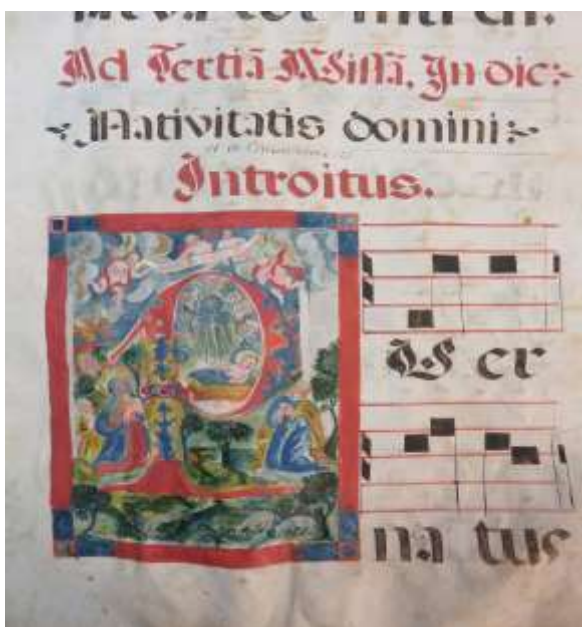 Ad Tertiā Missā, In die:
Nativitatis domini:
Introitus.
P V er
na tus